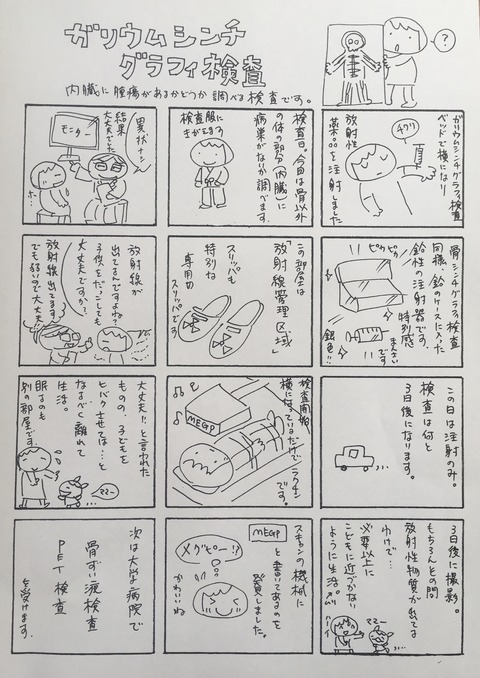 ガリウムシンチ
グラフィ検査
内臓に腫瘍があるかどうか調べる検査です。
?
ガリウムシンチグラフィ検査
ベッドで横になり
放射性
薬品を注射しました
チクリ
骨シンチグラフィ検査
同様、鉛のケースに入った
鉛性の注射器です。
特別感
まんさい
です
ピカピカ
銀色!!
この日は注射のみ。
検査は何と
3日後になります。
3日後に撮影。
もちろんその間
放射性物質が出てる
わけで…
必要以上に
こどもに近づかない
ように生活。
ママー
検査服に
きがえます
検査日。今回は骨以外
の体の部分(内臓)に
病巣がないか調べます。
この部屋は
「放射線管理区域」
スリッパも
特別な
専用の
スリッパです
検査開始
横になっているだけでラクチン
です。
MEGP
スキャンの機械に
MEGP
と書いてあるのを
発見しました。
メグピー!?
かわいいね
モニター
異状ナシ
結果
大丈夫でした
放射線が
出てるんですよね?
子供をだっこしても
大丈夫ですか?
放射線出てます
でも弱いので大丈夫
大丈夫!!と言われた
ものの、子どもを
ヒバクさせては…と
なるべく離れて
生活。
眠るのも
別の部屋です
ママー
次は大学病院で
骨ずい液検査
PET検査
を受けます。